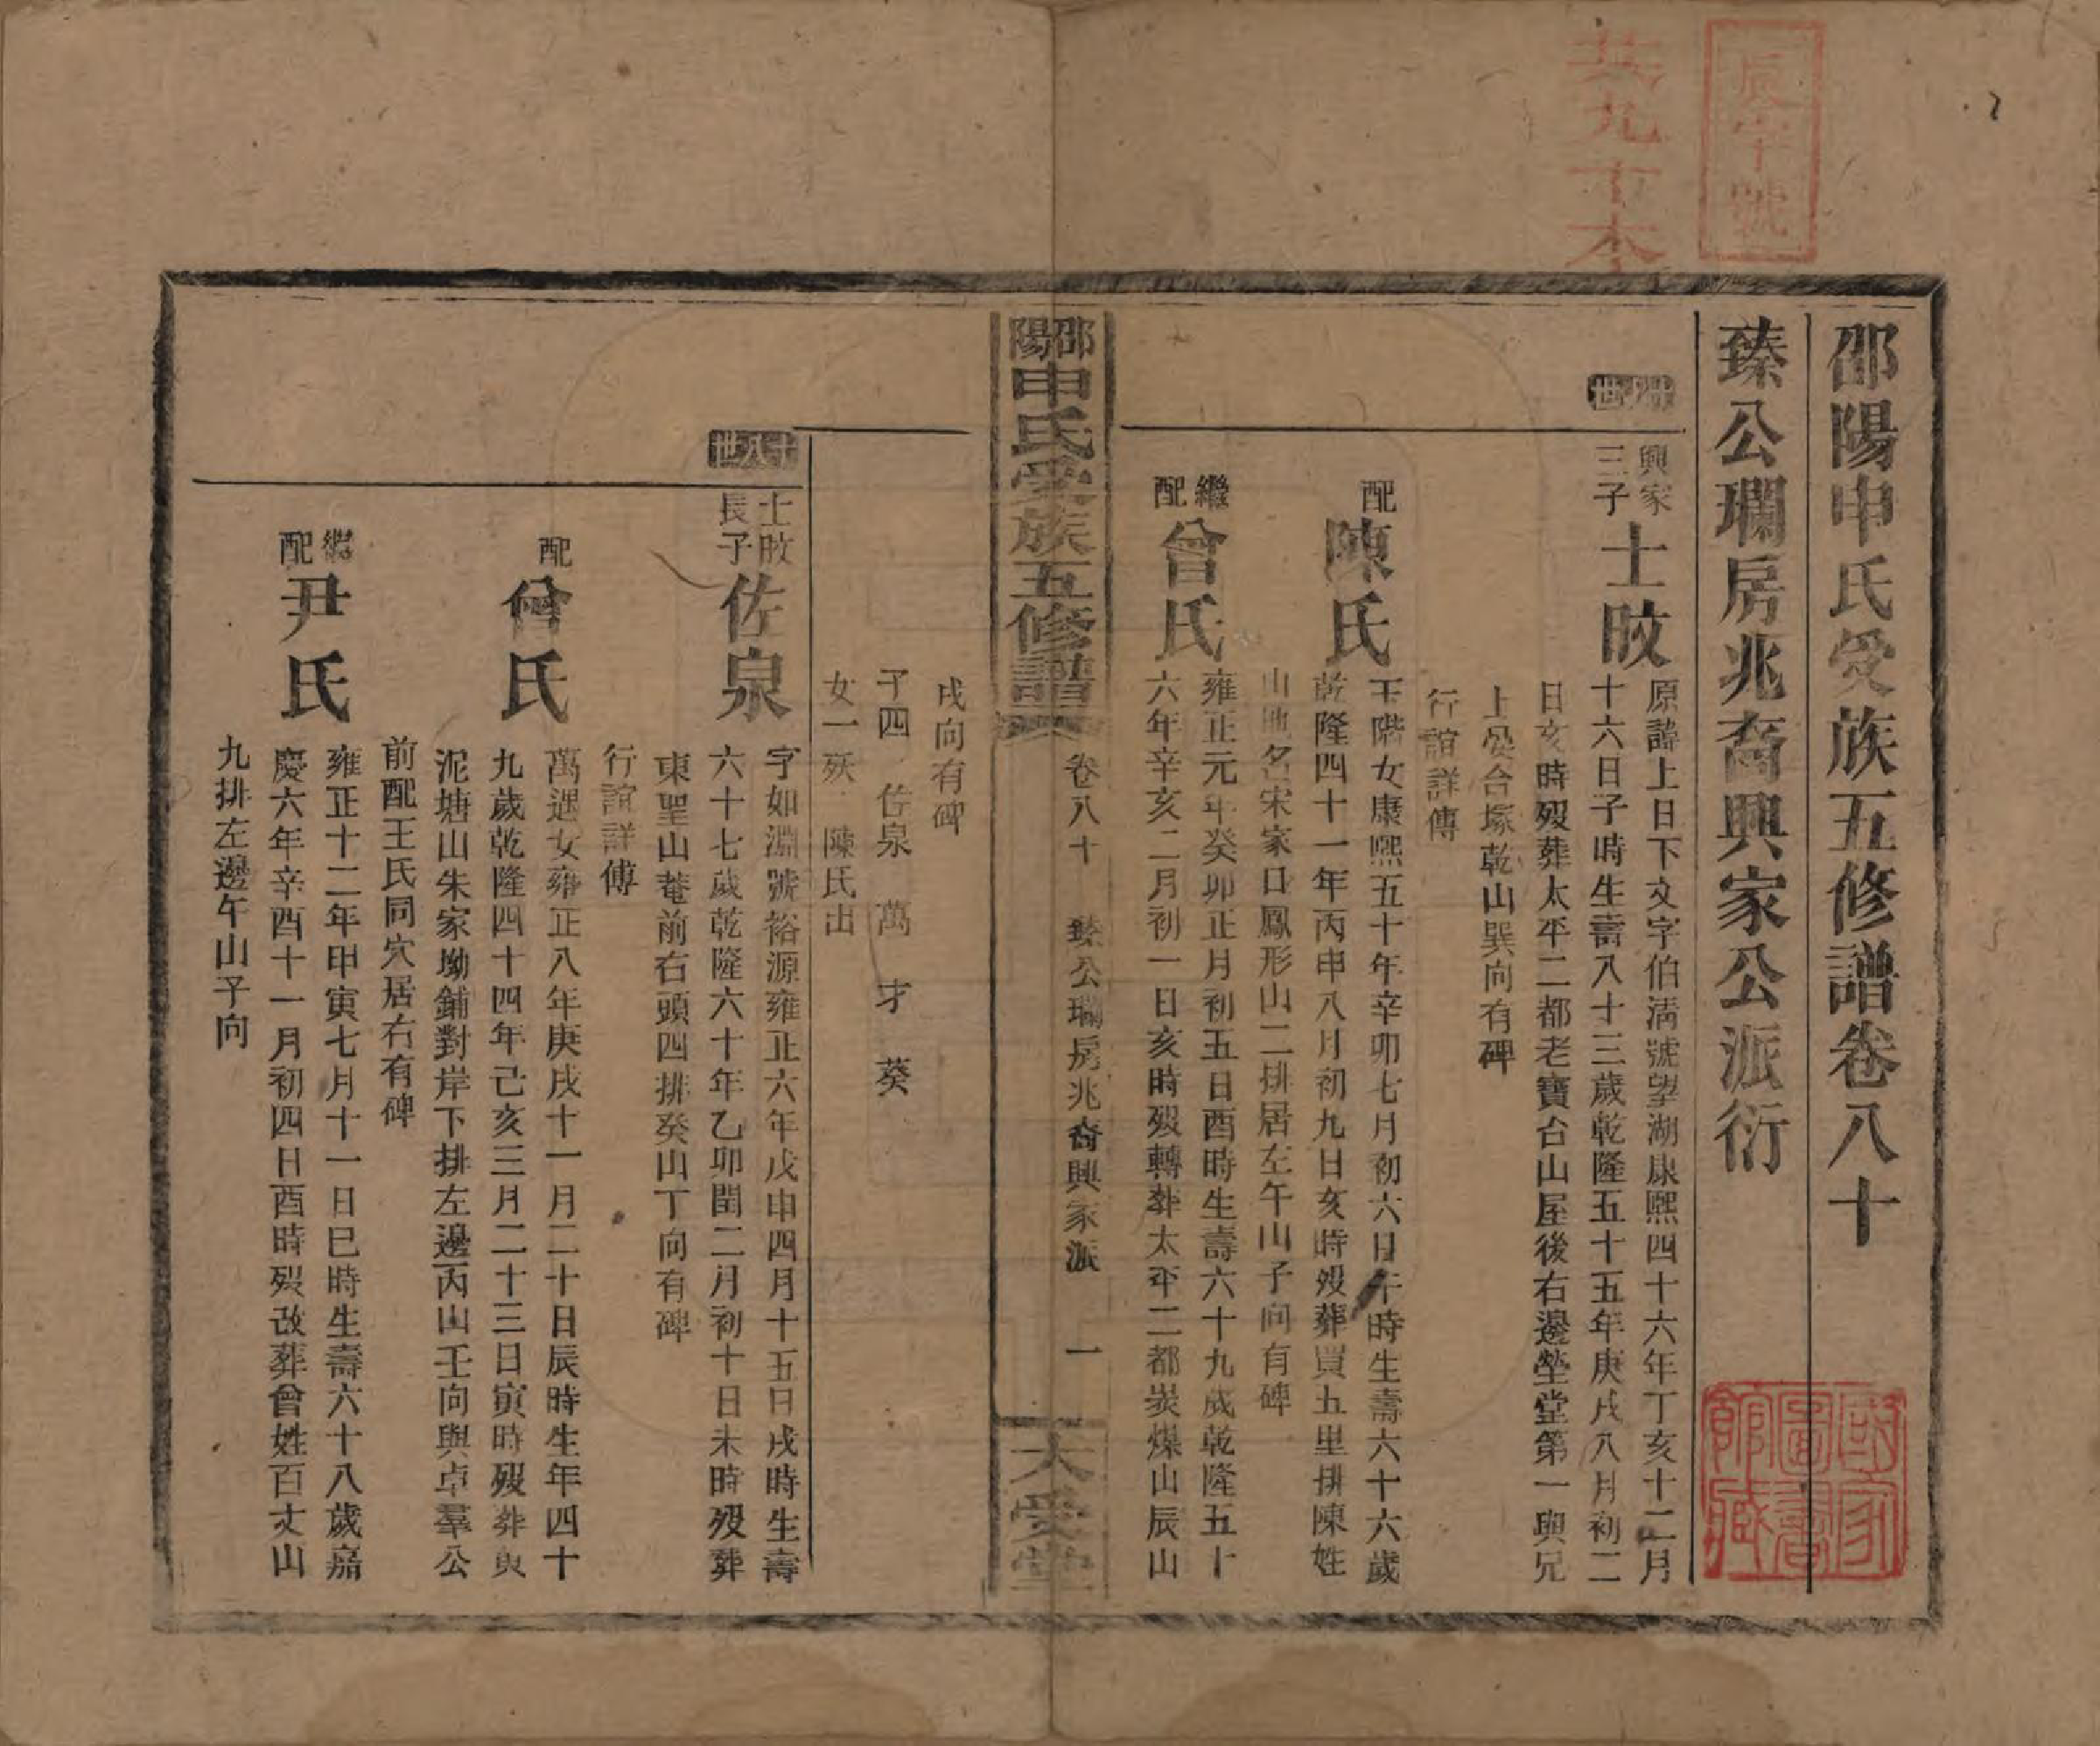 辰字號
共九十本
邵陽申氏受族五修譜卷八十
臻公瓓房兆裔興家公派衍
世
興家
三子
士旼
原諱上日下文字伯淸號望湖康熙四十六年丁亥十二月
十六日子時生壽八十三歲乾隆五十五年庚戌八月初二
日亥時歿葬太平二都老寶台山屋後右邊塋堂第一與兄
上晏台塚乾山巽向有碑
行誼詳傳
配
陳氏
玉階女康熙五十年辛卯七月初六日午時生壽六十六歲
乾隆四十一年丙申八月初九日亥時歿葬買五里排陳姓
山地名宋家口鳳形山二排居左午山子向有碑
繼配
曾氏
雍正元年癸卯正月初五日酉時生壽六十九歲乾隆五十
六年辛亥二月初一日亥時歿轉葬太平二都炭煤山辰山
邵陽申氏受族五修譜
卷八十
臻公瓓房兆裔興家派
一
大受堂
戌向有碑
子四 佐泉 萬 才 葵
女一殀 陳氏出
十八世
士旼
長子
佐泉
字如淵號裕源雍正六年戊申四月十五日戌時生壽
六十七歲乾隆六十年乙卯閏二月初十日未時歿葬
東聖山菴前右頭四排癸山丁向有碑
行誼詳傳
配
曾氏
萬選女雍正八年庚戌十一月二十日辰時生年四十
九歲乾隆四十四年己亥三月二十三日寅時歿葬與
泥塘山朱家坳鋪對岸下排左邊丙山壬向與卓羣公
前配王氏同穴居右有碑
繼配
尹氏
雍正十二年甲寅七月十一日巳時生壽六十八歲嘉
慶六年辛酉十一月初四日酉時歿改葬曾姓百丈山
九排左邊午山子向
國家圖書館藏